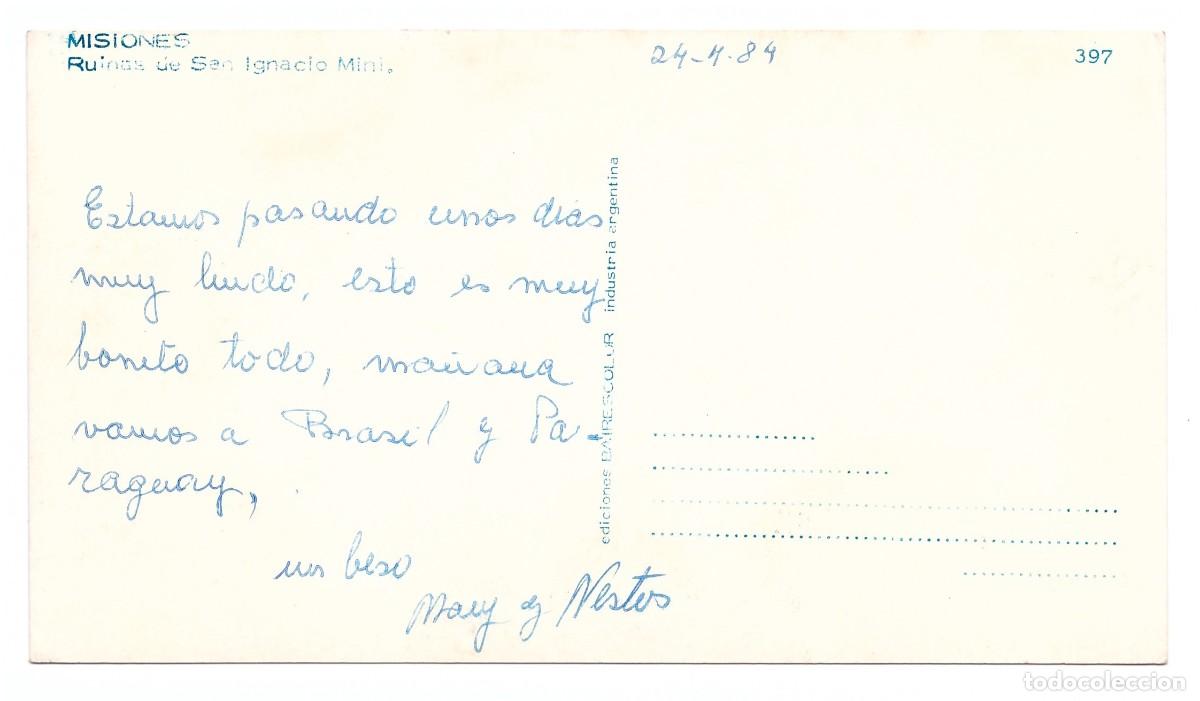 MISIONES
Ruinas de San Ignacio Mini.
24-4-84
397
Estamos pasando unos dias
muy lindo, esto es muy
bonito todo, mañana
vamos a Brasil y Pa-
raguay,
un beso
Mary y Nestor
ediciones BAIRESCOLOR industria argentina
todocoleccion